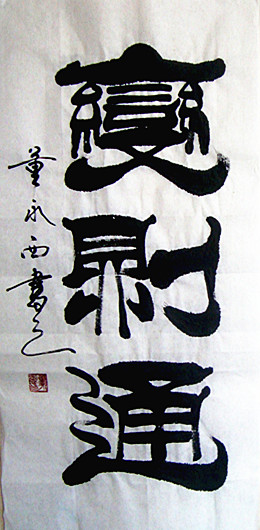 變則通
董永西書之